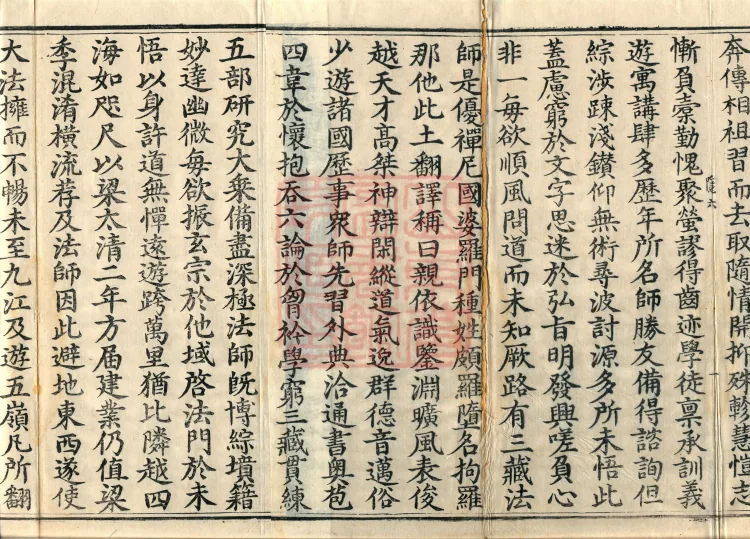 奔傳相祖習而去取隨情開抑殊軫慧愷志
慚負橐勤愧聚螢謬得齒迹學徒稟承訓義
遊寓講肆多歷年所名師勝友備得諮詢但
綜涉踈淺鑽仰無術尋波討源多所未悟此
蓋慮窮於文字思迷於弘旨明發興嗟負心
非一每欲順風問道而未知厥路有三藏法
師是優禪尼國婆羅門種姓頗羅墮名拘羅
那他此土翻譯稱曰親依識鑒淵曠風表俊
越天才高桀神辯閑縱道氣逸群德音邁俗
少遊諸國歷事衆師先習外典洽通書奧苞
四韋於懷抱吞六論於胷衿學窮三藏貫練
五部研究大乘備盡深極法師既博綜墳籍
妙達幽微每欲振玄宗於他域啓法門於未
悟以身許道無憚遠遊跨萬里猶比隣越四
海如咫尺以梁太清二年方屆建業仍值梁
季混淆橫流荐及法師因此避地東西遂使
大法擁而不暢未至九江及遊五嶺凡所翻